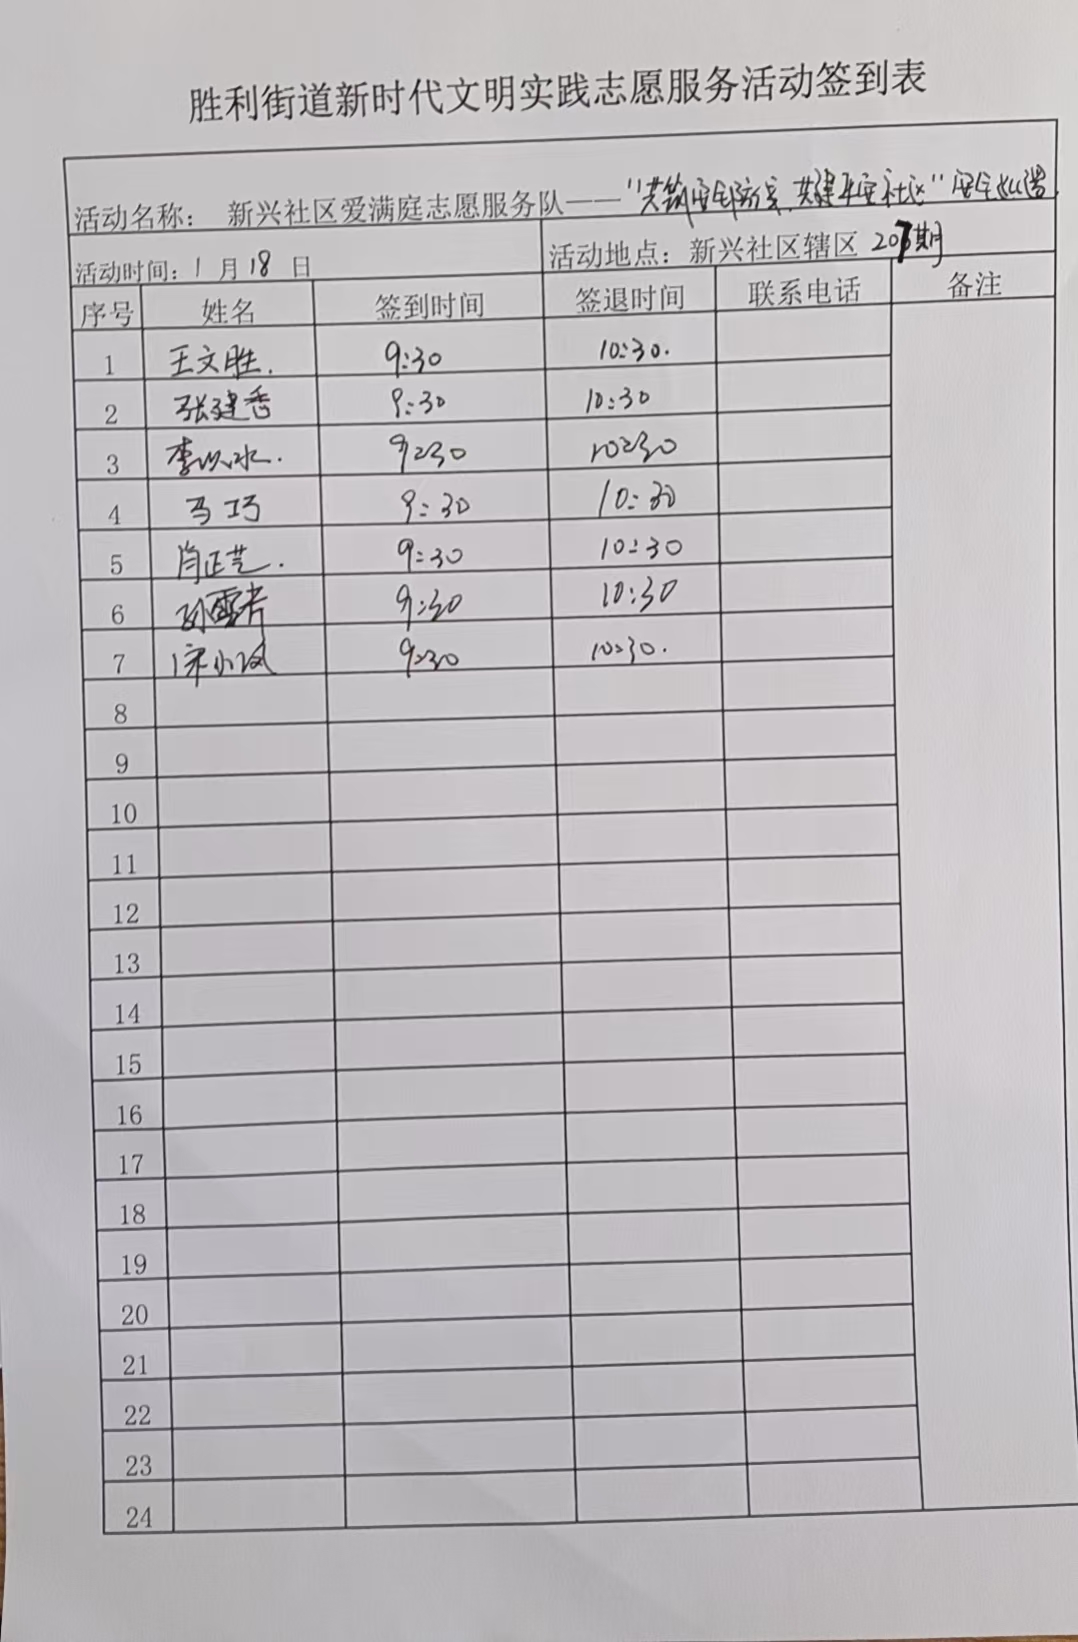 胜利街道新时代文明实践志愿服务活动签到表
活动名称： 新兴社区爱满庭志愿服务队——“共筑安全防线,共建平安社区”安全巡逻
活动时间：1 月 18 日 活动地点：新兴社区辖区 207期
序号 姓名 签到时间 签退时间 联系电话 备注
1 王文胜. 9:30 10:30.
2 张建香 9:30 10:30
3 李 水. 9:30 10:30
4 马巧 9:30 10:30
5 肖正芝. 9:30 10:30
6 孙雪芹 9:30 10:30
7 宋小凤 9:30 10:30.
8
9
10
11
12
13
14
15
16
17
18
19
20
21
22
23
24